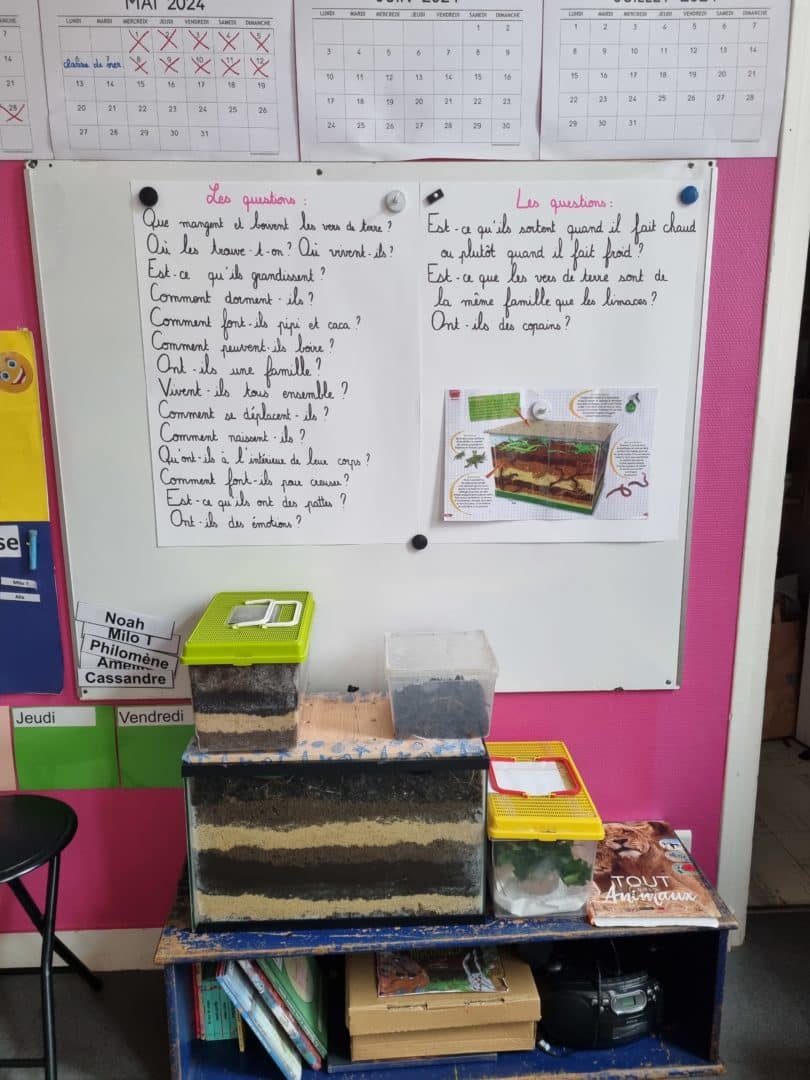 MAI 2024
JUIN 2024
JUILLET 2024
LUNDI MARDI MERCREDI JEUDI VENDREDI SAMEDI DIMANCHE
1 2 3 4 5
classe de mer 8 9 10 11 12
13 14 15 16 17 18 19
20 21 22 23 24 25 26
27 28 29 30 31
LUNDI MARDI MERCREDI JEUDI VENDREDI SAMEDI DIMANCHE
1 2
3 4 5 6 7 8 9
10 11 12 13 14 15 16
17 18 19 20 21 22 23
24 25 26 27 28 29 30
LUNDI MARDI MERCREDI JEUDI VENDREDI SAMEDI DIMANCHE
1 2 3 4 5 6 7
8 9 10 11 12 13 14
15 16 17 18 19 20 21
22 23 24 25 26 27 28
29 30 31
7
14
21
28
Les questions :
Que mangent et boivent les vers de terre ?
Où les trouve-t-on ? Où vivent-ils ?
Est-ce qu'ils grandissent ?
Comment dorment-ils ?
Comment font-ils pipi et caca ?
Comment peuvent-ils boire ?
Ont-ils une famille ?
Vivent-ils tous ensemble ?
Comment se déplacent-ils ?
Comment naissent-ils ?
Qu'ont-ils à l'intérieur de leur corps ?
Comment font-ils pour creuser ?
Est-ce qu'ils ont des pattes ?
Ont-ils des émotions ?
Les questions :
Est-ce qu'ils sortent quand il fait chaud
ou plutôt quand il fait froid ?
Est-ce que les vers de terre sont de
la même famille que les limaces ?
Ont-ils des copains ?
se
Milo 1
Noah
Milo 1
Philomène
Cassandre
Jeudi
Vendredi
TOUT
Animaux